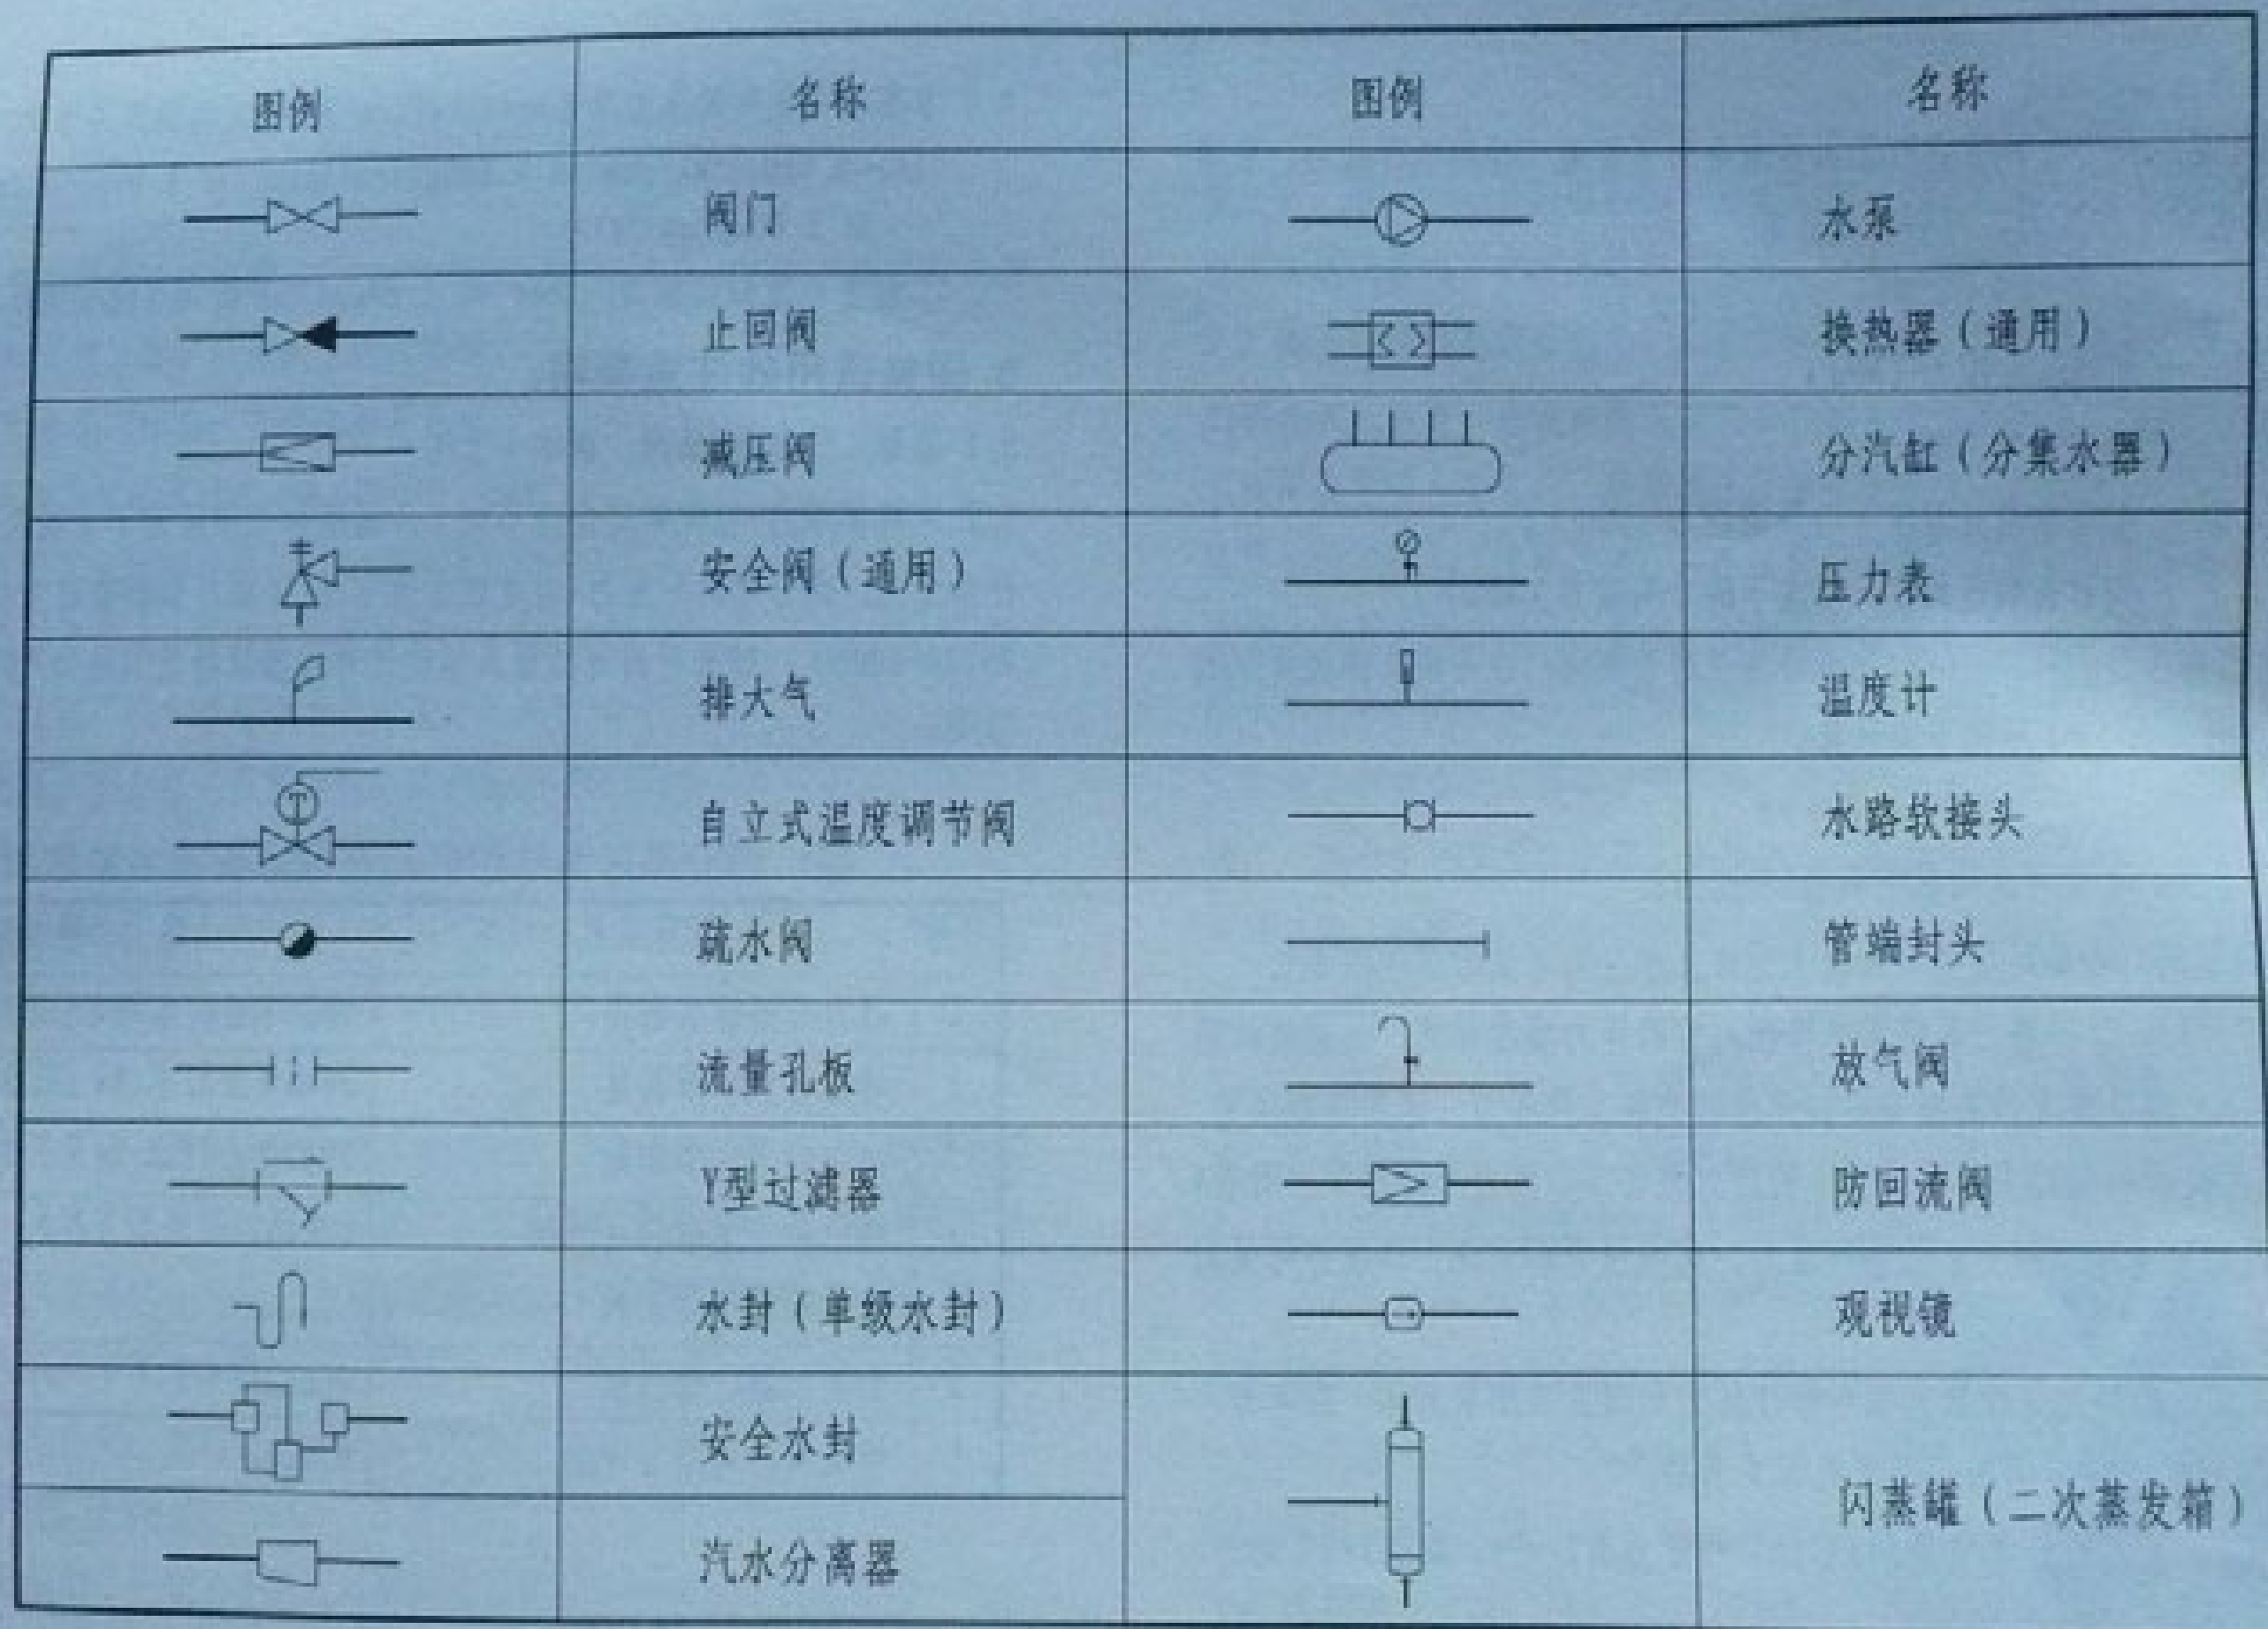 图例 名称 图例 名称
阀门 水泵
止回阀 换热器（通用）
减压阀 分汽缸（分集水器）
安全阀（通用） 压力表
排大气 温度计
T
自立式温度调节阀 水路软接头
疏水阀 管端封头
流量孔板 放气阀
Y型过滤器 防回流阀
水封（单级水封） 观视镜
安全水封 闪蒸罐（二次蒸发箱）
汽水分离器